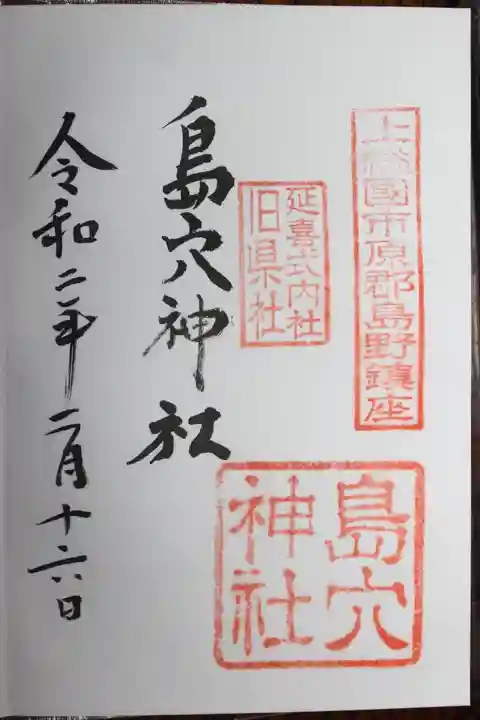 上総國市原郡島野鎮座
延喜式内社
旧県社
島穴神社
島穴
神社
令和二年二月十六日